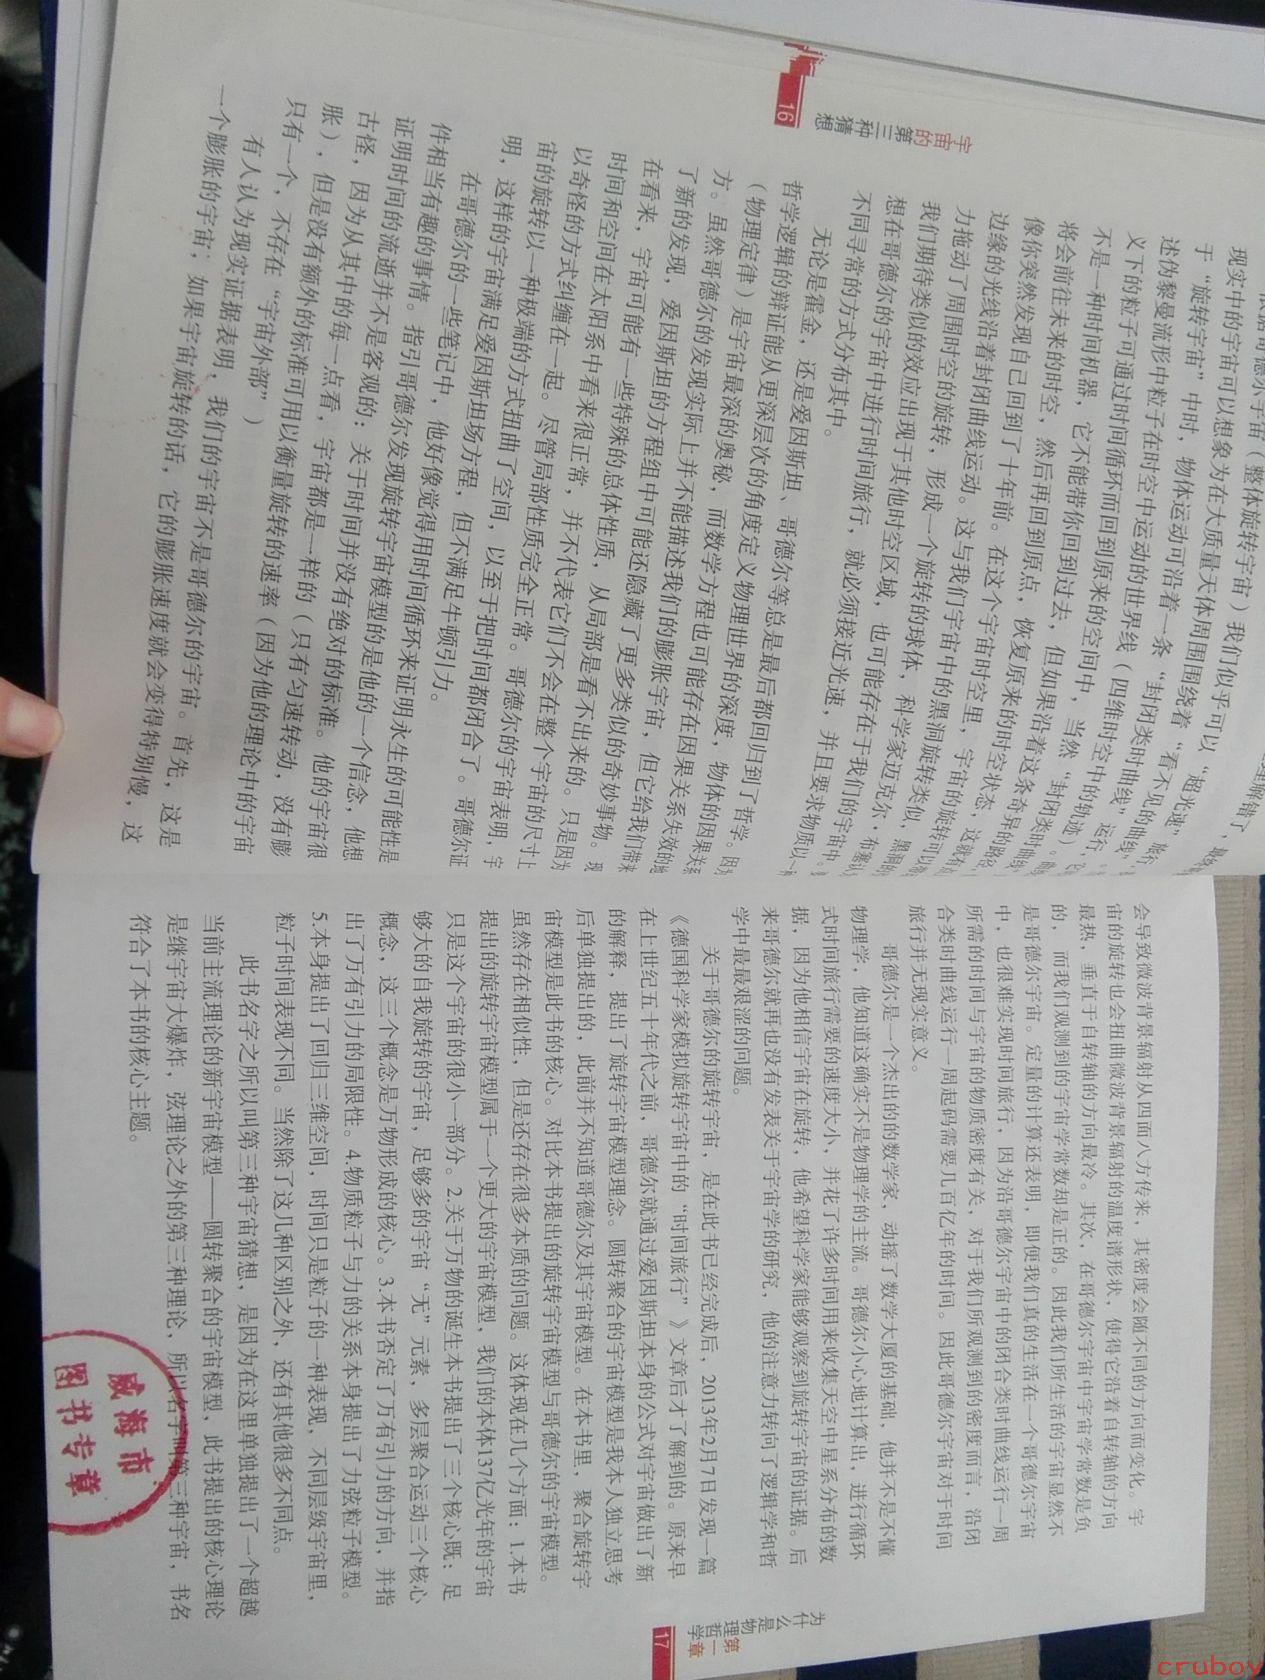 宇宙的
第三种猜想
16
现实中的宇宙可以想象为在大质量天体周围围绕着“看不见的曲线”
于“旋转宇宙”中时，物体运动可沿着一条“封闭类时曲线”
述伪黎曼流形中粒子在时空中运动的世界线（四维时空中的轨迹）
义下的粒子可通过时间循环而回到原来的空间中，当然“封闭类时曲线
不是一种时间机器，它不能带你回到过去，但如果沿着这条奇异的路径
将会前往未来的时空，然后再回到原点，恢复原来的时空状态，这就有
像你突然发现自己回到了十年前。在这个宇宙时空里，宇宙的旋转可以
边缘的光线沿着封闭曲线运动。这与我们宇宙中的黑洞旋转类似，黑洞
力拖动了周围时空的旋转，形成一个旋转的球体，科学家迈克尔·布
我们期待类似的效应出现于其他时空区域，也可能存在于我们的宇宙中。
想在哥德尔的宇宙中进行时间旅行，就必须接近光速，并且要求物质以一
不同寻常的方式分布其中。
无论是霍金，还是爱因斯坦、哥德尔等总是最后都回归到了哲学。因为
哲学逻辑的辩证能从更深层次的角度定义物理世界的深度，物体的因果关系
（物理定律）是宇宙最深的奥秘，而数学方程也可能存在因果关系失效的地
方。虽然哥德尔的发现实际上并不能描述我们的膨胀宇宙，但它给我们带来
了新的发现，爱因斯坦的方程组中可能还隐藏了更多类似的奇妙事物。现
在看来，宇宙可能有一些特殊的总体性质，从局部是看不出来的。只是因为
时间和空间在太阳系中看来很正常，并不代表它们不会在整个宇宙的尺寸上
以奇怪的方式纠缠在一起。尽管局部性质完全正常。哥德尔的宇宙表明，宇
宙的旋转以一种极端的方式扭曲了空间，以至于把时间都闭合了。哥德尔证
明，这样的宇宙满足爱因斯坦场方程，但不满足牛顿引力。
在哥德尔的一些笔记中，他好像觉得用时间循环来证明永生的可能性是
件相当有趣的事情。指引哥德尔发现旋转宇宙模型的是他的一个信念，他想
证明时间的流逝并不是客观的：关于时间并没有绝对的标准。他的宇宙很
古怪，因为从其中的每一点看，宇宙都是一样的（只有匀速转动，没有膨
胀），但是没有额外的标准可用以衡量旋转的速率（因为他的理论中的宇宙
只有一个，不存在“宇宙外部”）
有人认为现实证据表明，我们的宇宙不是哥德尔的宇宙。首先，这是
一个膨胀的宇宙；如果宇宙旋转的话，它的膨胀速度就会变得特别慢，这
会导致微波背景辐射从四面八方传来，其密度会随不同的方向而变化。宇
宙的旋转也会扭曲微波背景辐射的温度谱形状，使得它沿着自转轴的方向
最热，垂直于自转轴的方向最冷。其次，在哥德尔宇宙中宇宙学常数是负
的，而我们观测到的宇宙学常数却是正的。因此我们所生活的宇宙显然不
是哥德尔宇宙。定量的计算还表明，即便我们真的生活在一个哥德尔宇宙
中，也很难实现时间旅行，因为沿哥德尔宇宙中的闭合类时曲线运行一周
所需的时间与宇宙的物质密度有关，对于我们所观测到的密度而言，沿闭
合类时曲线运行一周起码需要几百亿年的时间。因此哥德尔宇宙对于时间
旅行并无现实意义。
哥德尔是一个杰出的的数学家，动摇了数学大厦的基础，他并不是不懂
物理学，他知道这确实不是物理学的主流。哥德尔小心地计算出，进行循环
式时间旅行需要的速度大小，并花了许多时间用来收集天空中星系分布的数
据，因为他相信宇宙在旋转，他希望科学家能够观察到旋转宇宙的证据。后
来哥德尔就再也没有发表关于宇宙学的研究，他的注意力转向了逻辑学和哲
学中最最艰涩的问题。
关于哥德尔的旋转宇宙，是在此书已经完成后，2013年2月7日发现一篇
《德国科学家模拟旋转宇宙中的“时间旅行”》文章后才了解到的。原来早
在上世纪五十年代之前，哥德尔就通过爱因斯坦本身的公式对宇宙做出了新
的解释，提出了旋转宇宙模型理念。圆转聚合的宇宙模型是我本人独立思考
后单独提出的，此前并不知道哥德尔及其宇宙模型。在本书里，聚合旋转宇
宙模型是此书的核心。对比本书提出的旋转宇宙模型与哥德尔的宇宙模型。
虽然存在相似性，但是还存在很多本质的问题。这体现在几个方面：1.本书
提出的旋转宇宙模型属于一个更大的宇宙模型，我们的本体137亿光年的宇宙
只是这个宇宙的很小一部分。2.关于万物的诞生本书提出了三个核心既：足
够大的自我旋转的宇宙，足够多的宇宙“无”元素，多层聚合运动三个核心
概念，这三个概念是万物形成的核心。3.本书否定了万有引力的方向，并指
出了万有引力的局限性。4.物质粒子与力的关系本身提出了力弦粒子模型。
5.本身提出了回归三维空间，时间只是粒子的一种表现，不同层级宇宙里，
粒子时间表现不同。当然除了这几种区别之外，还有其他很多不同点。
此书名字之所以叫第三种宇宙猜想，是因为在这里单独提出了一个超越
当前主流理论的新宇宙模型——圆转聚合的宇宙模型，此书提出的核心理论
是继宇宙大爆炸，弦理论之外的第三种理论，所以名字叫第三种宇宙，书名
符合了本书的核心主题。
威海市
图书专章
第一章
为什么是物理哲学
17
cruboy